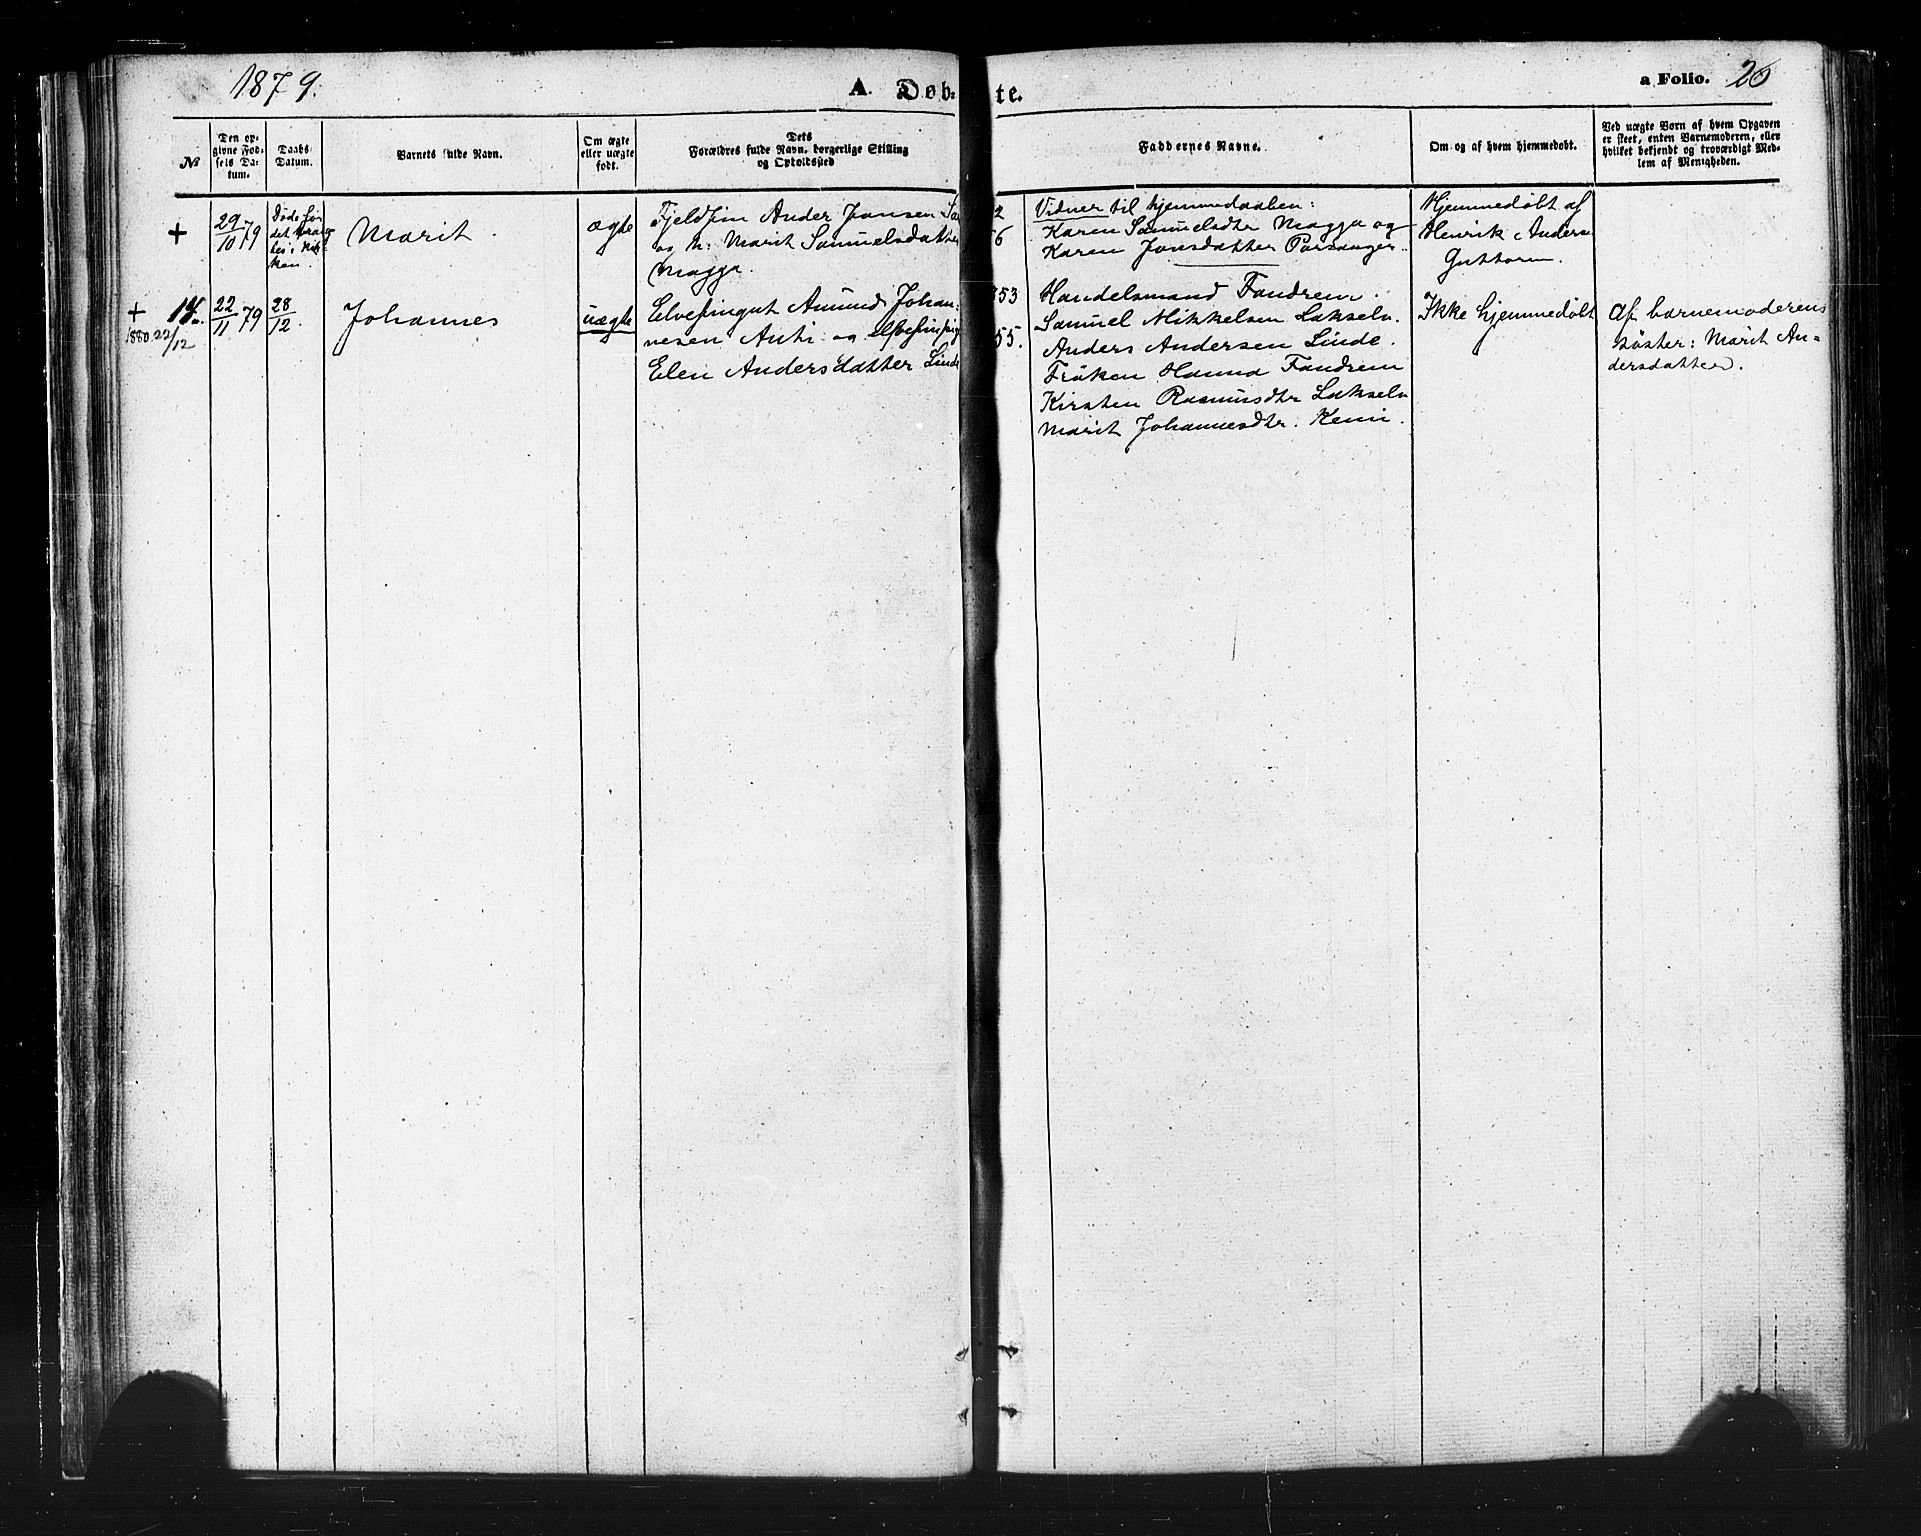 1879.
A. Døb: te.
a Folio. 26
№
Den op-
givne Fød-
sels Da-
tum.
Daabs
Datum.
Barnets fulde Navn.
Om ægte
eller uægte
født.
Dets
Forældres fulde Navn, borgerlige Stilling
og Opholdssted
Faddernes Navne.
Om og af hvem hjemmedøbt.
Ved uægte Børn af hvem Opgaven
er skeet, enten Barnemoderen, eller
hvilket bekjendt og troværdigt Med-
lem af Menigheden.
+
29/10 79
Døde før
det bragtes i Kir-
ken.
Marit.
ægte
Fjeldfin Ander Jonsen
og h: Marit Samuelsdatter
Magga.
2
6
Vidner til hjemmedaaben:
Karen Samuelsdtr Magga og
Karen Jonsdatter Porsanger.
Hjemmedøbt af
Henrik Andersn
Guttorm.
+ 14.
1880 22/12
22/11 79
28/12.
Johannes
uægte
Elvefingut Amund Johan-
nesen Anti og Elvefinpig
Elen Andersdatter Linde
853
55.
Handelsmand Fandrem.
Samuel Mikkelsen Lakselv.
Anders Andersen Linde.
Frøken Hanna Fandrem
Kirsten Rasmusdtr Lakselv
Marit Johannesdtr. Kemi.
Ikke hjemmedøbt
Af barnemoderens
søster: Marit An-
dersdatter.